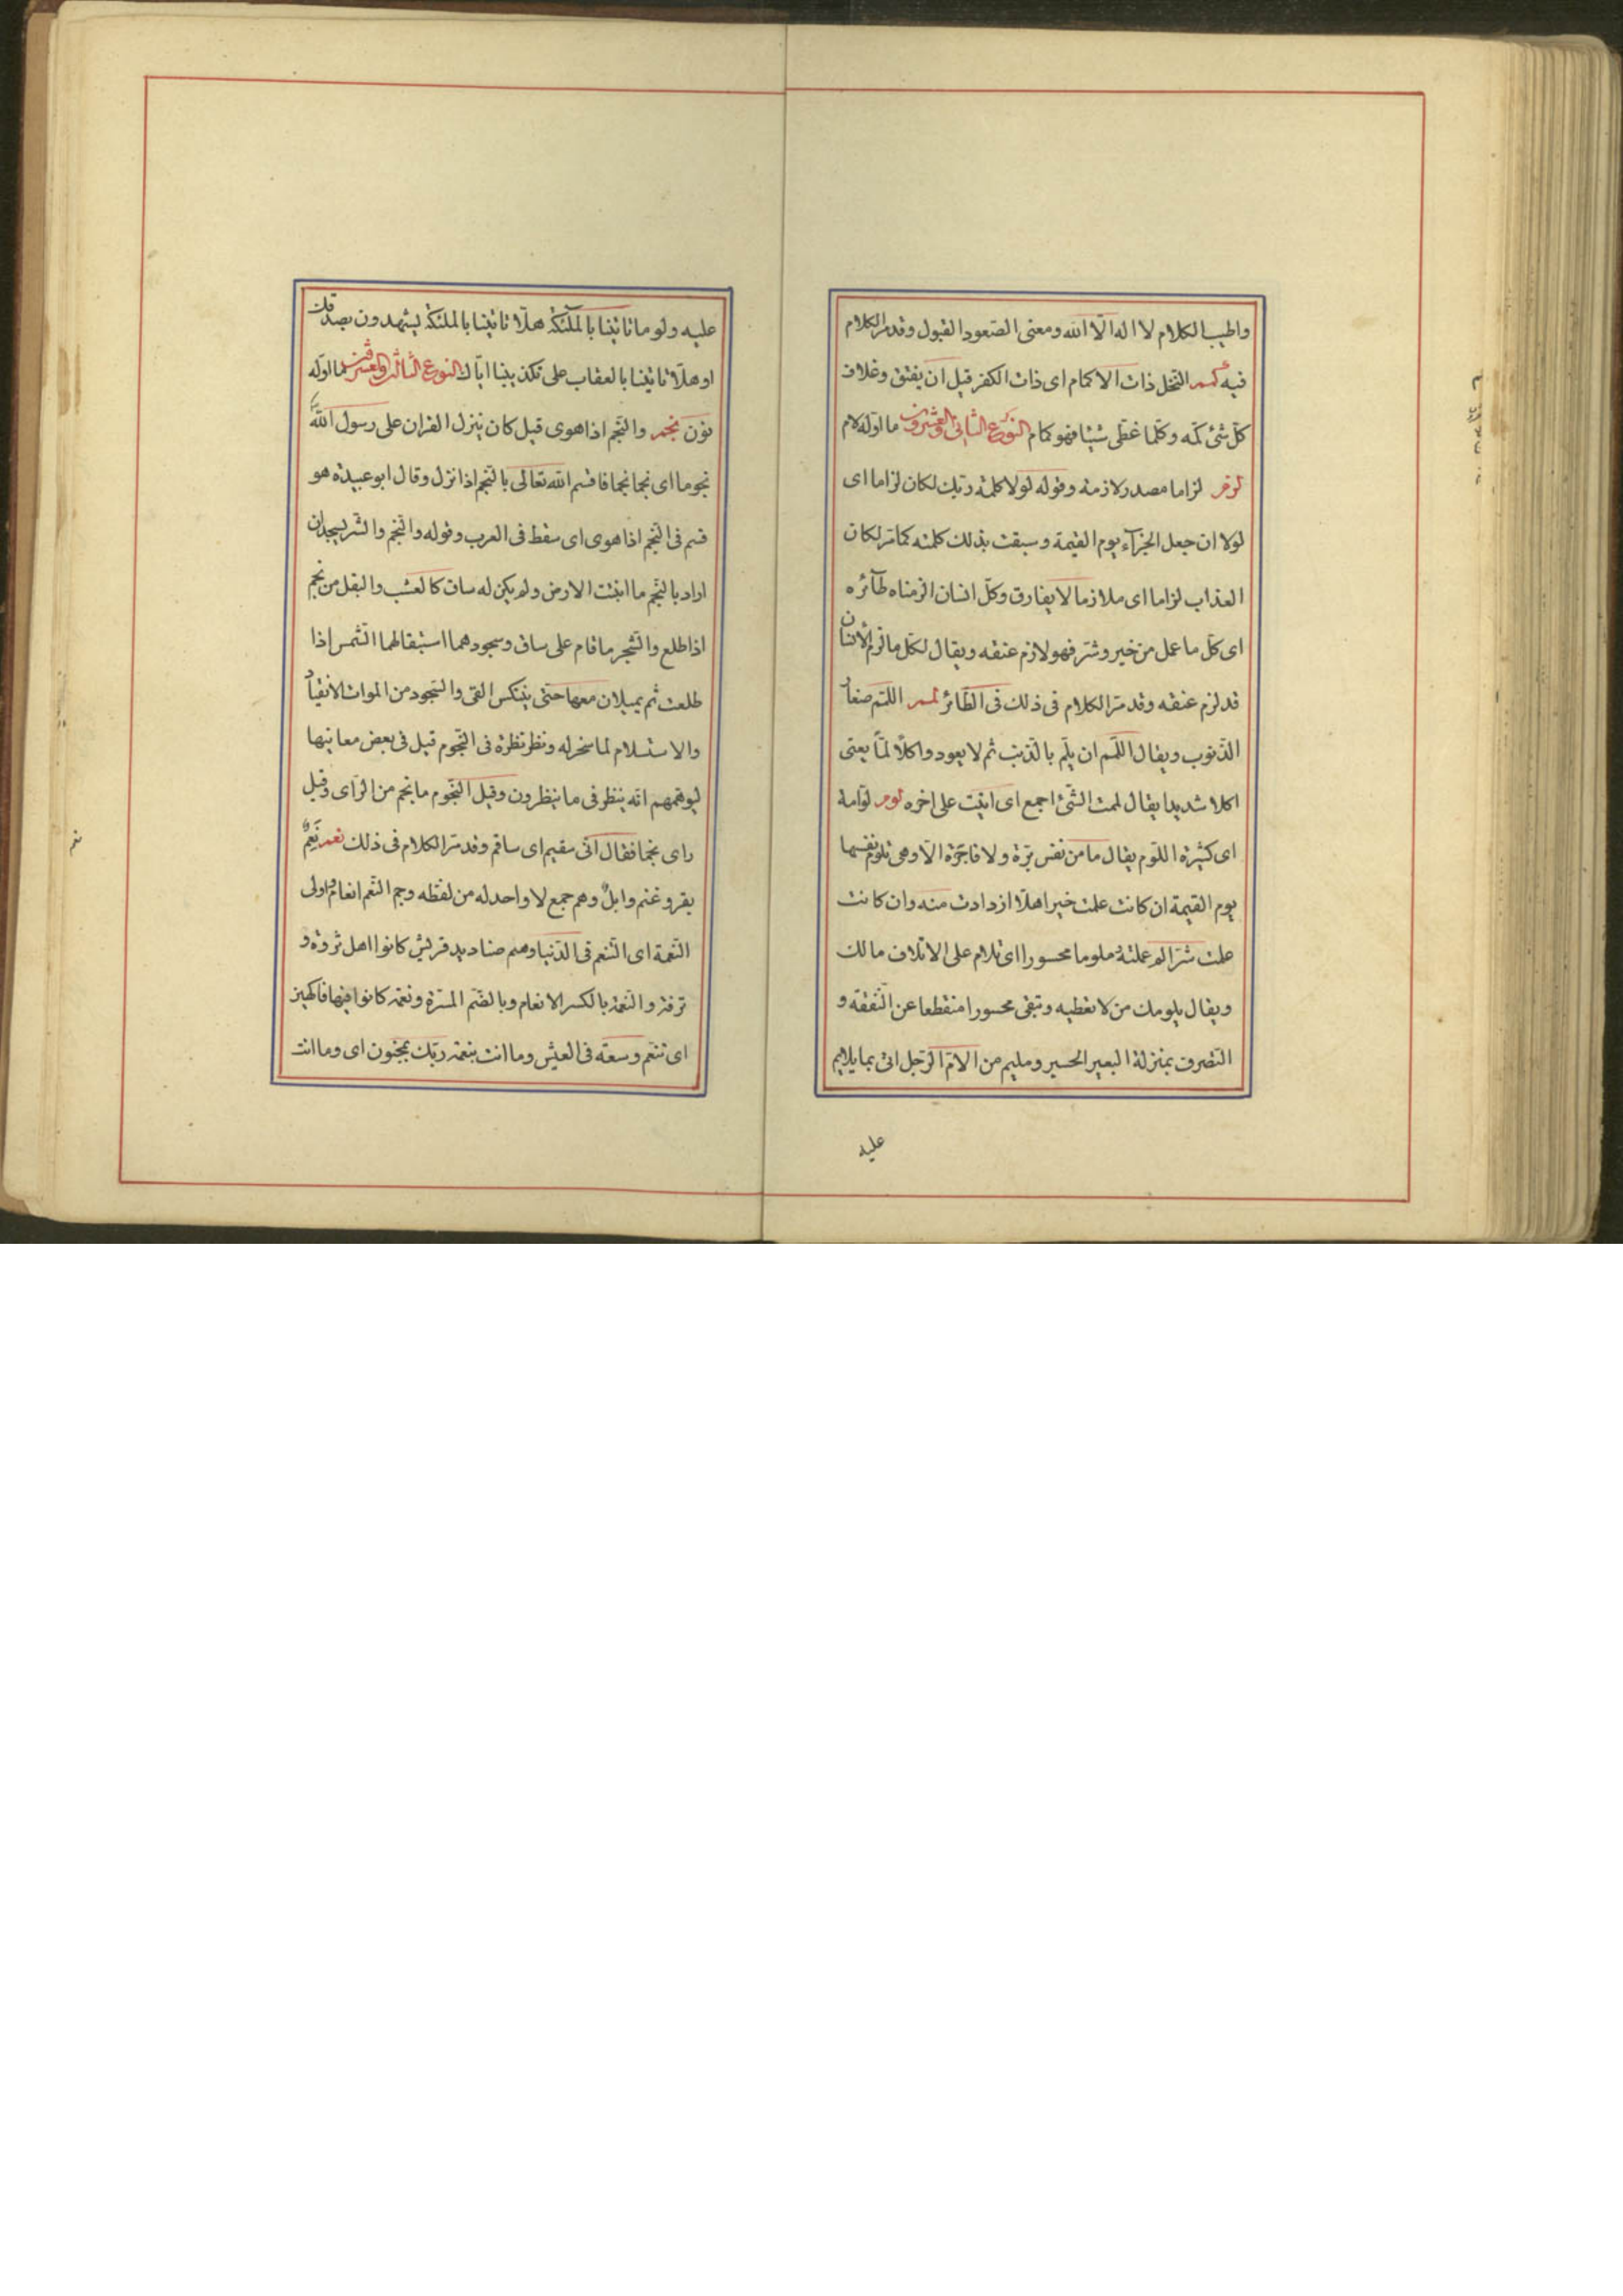 واطيب الكلام لا اله الّا الله ومعنى الصّعود القبول وقد مر الكلام
فيه كمم النّخل ذات الاكمام اى ذات الكفر قبل ان يفتق وغلاف
كلّ شئ كمّه وكلّما غطّى شيئا فهو كمام النوع الثانى والعشرون ما اوّله لام
لزم لزاما مصدر لازمته وقوله لولا كلمة ربّك لكان لزاما اى
لولا ان جعل الجزآء يوم القيمة وسبقت بذلك كلمته كما مرّ لكان
العذاب لزاما اى ملازما لا يفارق وكلّ انسان الزمناه طآئره
اى كلّ ما عمل من خير وشرّ فهو لازم عنقه ويقال لكلّ ما لزم الانسان
قد لزم عنقه وقد مرّ الكلام فى ذلك فى الطّائر لمم اللّمم صغار
الذّنوب ويقال اللّمم ان يلّم بالذّنب ثم لا يعود واكلًا لمّا يعنى
اكلا شديدا يقال لممت الشّئ اجمع اى اتيت على اخره لوم لوّامة
اى كثيرة اللّوم يقال ما من نفس برّة ولا فاجرة الّا وهى تلوم نفسها
يوم القيمة ان كانت عملت خيرا هلّا ازدادت منه وان كانت
عملت شرّا لم عملته ملوما محسورا اى تلام على الاتلاف مالك
ويقال يلومك من لا تعطيه وتبقى محسورا منقطعا عن النّفقة و
التصرف بمنزلة البعير الحسير ومليم من الام الرّجل اتى بما يلايم
عليه
عليه ولو ما تاتينا بالملئكة هلّا تاتينا بالملئكة ليشهدون بصدقك
او هلّا تاتينا بالعقاب على تكذيبنا ايّاك النوع الثالث والعشرون ما اوّله
نون نجم والنّجم اذا هوى قيل كان ينزل القران على رسول الله
نجوما اى نجما نجما فاقسم الله تعالى بالنّجم اذا نزل وقال ابو عبيدة هو
قسم فى النّجم اذا هوى اى سقط فى العرب وقوله والنّجم والشّجر يسجدان
اراد بالنّجم ما انبتت الارض ولم يكن له ساق كالعشب والبقل من نجم
اذا طلع والشّجر ما قام على ساق وسجودهما استبقالهما الشّمس اذا
طلعت ثم يميلان معها حتى ينكس الفئ والسّجود من الموات الانقياد
والاستسلام لما سخر له ونظر نظرة فى النّجوم قيل فى بعض معانيها
ليوهمهم انّه ينظر فى ما ينظرون وقيل النّجوم ما نجم من الرّاى وقيل
راى نجما فقال انّى سقيم اى ساقم وقد مرّ الكلام فى ذلك نعم نعم
بقر وغنم وابل وهم جمع لا واحد له من لفظه وجمع النّعم انعام واولى
النّعمة اى التّنعم فى الدّنيا وهم صناديد قريش كانوا اهل ثروة و
ترفة والنّعمة بالكسر الانعام وبالضّم المسرّة ونعمة كانوا فيها فاكهين
اى تنعّم وسعة فى العيش وما انت بنعمة ربّك بمجنون اى وما انت
نعم